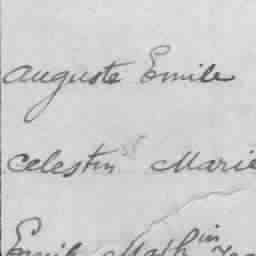 Auguste Emile
Celestin Marie
Emile Math in